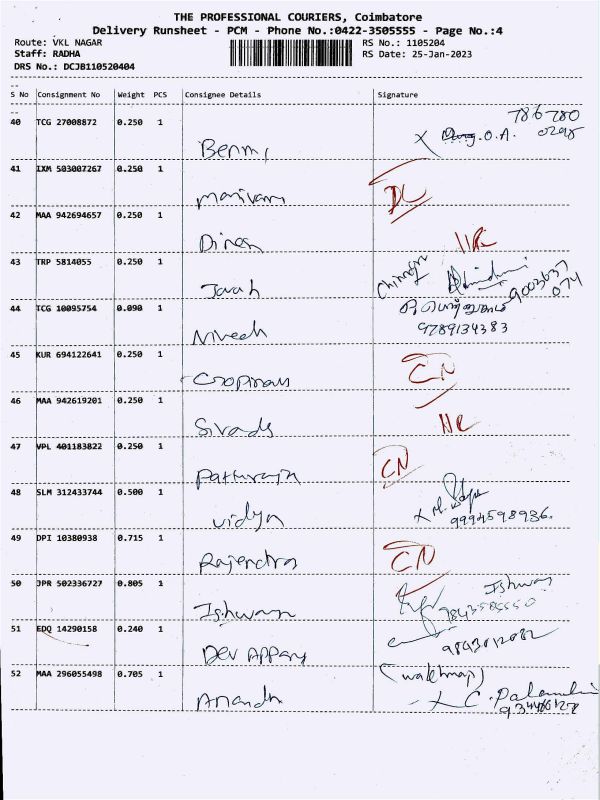 THE PROFESSIONAL COURIERS, Coimbatore
Delivery Runsheet - PCM - Phone No.:0422-3505555 - Page No.:4
Route: VKL NAGAR RS No.: 1105204
Staff: RADHA RS Date: 25-Jan-2023
DRS No.: DCJB110520404
S No Consignment No Weight PCS Consignee Details Signature
786780
40 TCG 27008872 0.250 1 O.A. 0298
41 IXM 503007267 0.250 1 DL
42 MAA 942694657 0.250 1 Dines
43 TRP 5814055 0.250 1 9003637
074
44 TCG 10095754 0.090 1 Niveeh
9789134383
45 KUR 694122641 0.250 1 CN
46 MAA 942619201 0.250 1 NR
47 VPL 401183822 0.250 1 CN
48 SLM 312433744 0.500 1 Vidya
9994598936.
49 DPI 10380938 0.715 1 Rajendra CN
50 JPR 502336727 0.805 1 Ishwar Ishwar
9843585550
51 EDQ 14290158 0.240 1 Dev Appany 9843012082
52 MAA 296055498 0.705 1 Anandh